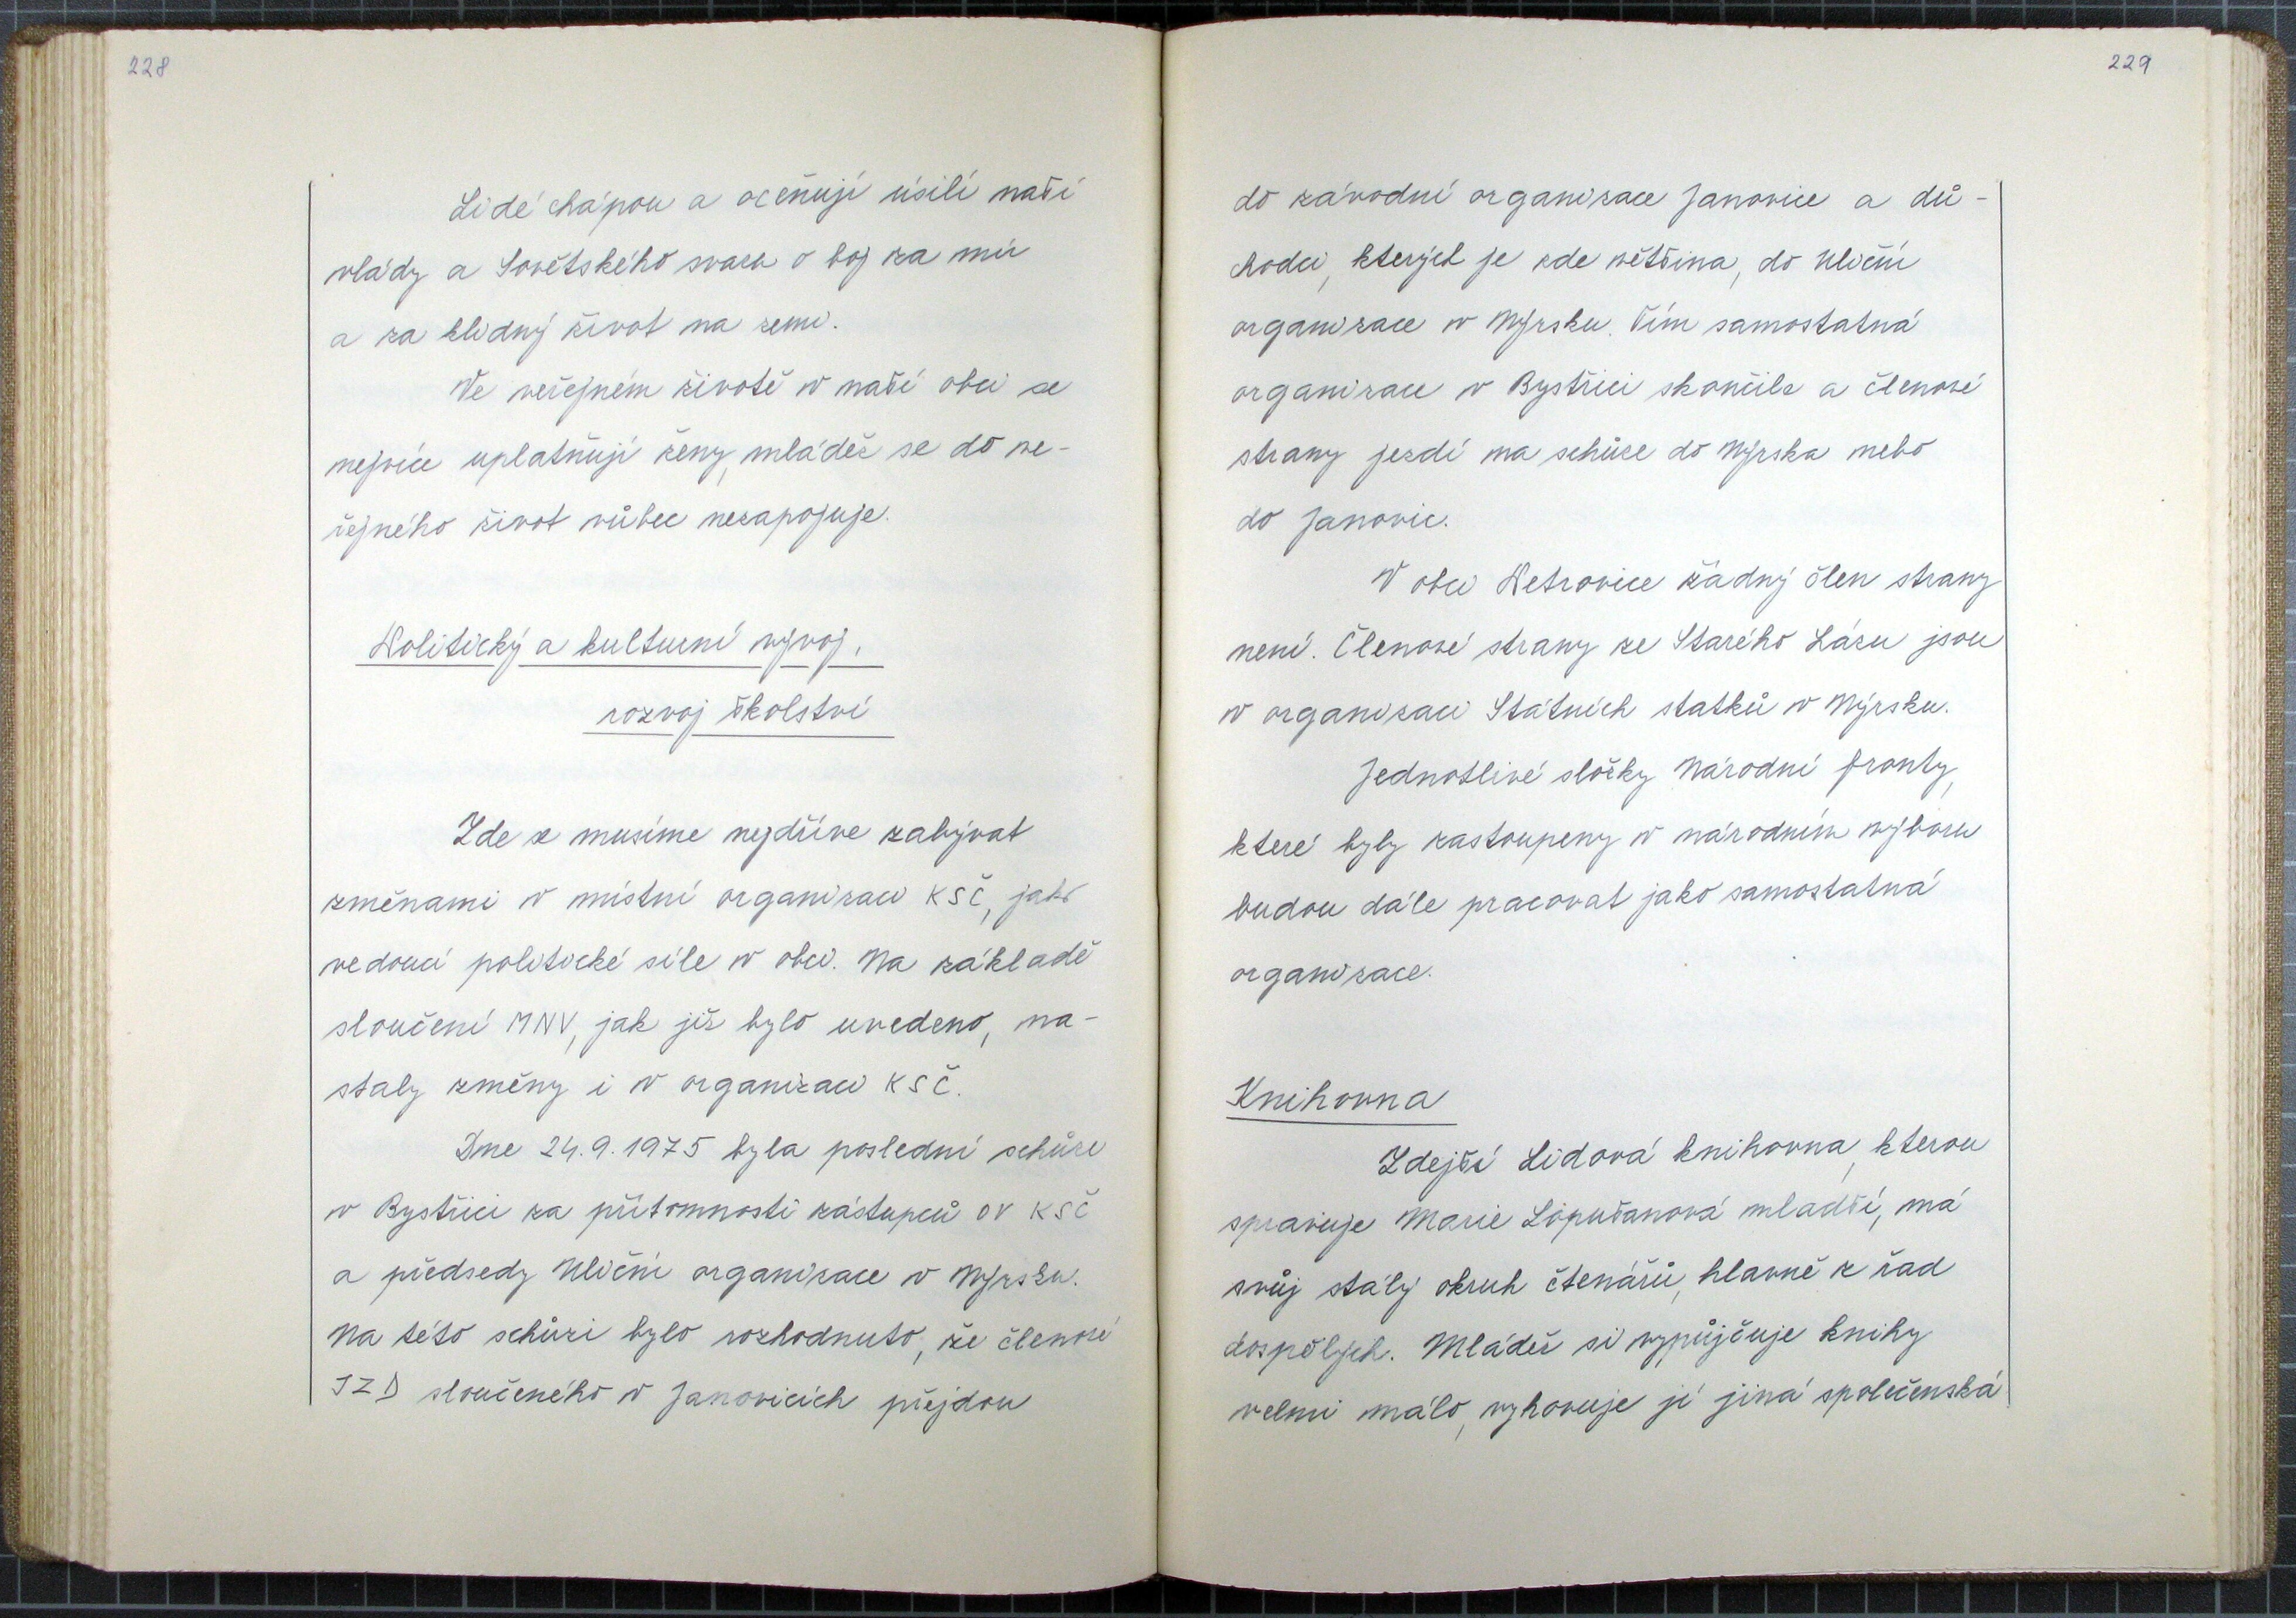 228
Lidé chápou a oceňují úsilí naší
vlády a Sovětského svazu o boj za mír
a za klidný život na zemi.
Ve veřejném životě v naší obci se
nejvíce uplatňují ženy, mládež se do ve-
řejného život vůbec nezapojuje.
Politický a kulturní vývoj,
rozvoj školství
Zde se musíme nejdříve zabývat
změnami v místní organizaci KSČ, jako
vedoucí politické síle v obci. Na základě
sloučení MNV, jak již bylo uvedeno, na-
staly změny i v organizaci KSČ.
Dne 24.9.1975 byla poslední schůze
v Bystřici za přítomnosti zástupců OV KSČ
a předsedy Uliční organizace v Nýrsku.
Na této schůzi bylo rozhodnuto, že členové
JZD sloučeného v Janovicích přejdou
229
do závodní organizace Janovice a dů-
chodci, kterých je zde většina, do Uliční
organizace v Nýrsku. Tím samostatná
organizace v Bystřici skončila a členové
strany jezdí na schůze do Nýrska nebo
do Janovic.
V obci Petrovice žádný člen strany
není. Členové strany ze Starého Lázu jsou
v organizaci Státních statků v Nýrsku.
Jednotlivé složky Národní fronty,
které byly zastoupeny v národním výboru
budou dále pracovat jako samostatná
organizace.
Knihovna
Zdejší Lidová knihovna, kterou
spravuje Marie Lopušanová mladší, má
svůj stálý okruh čtenářů, hlavně z řad
dospělých. Mládež si vypůjčuje knihy
velmi málo, vyhovuje jí jiná společenská